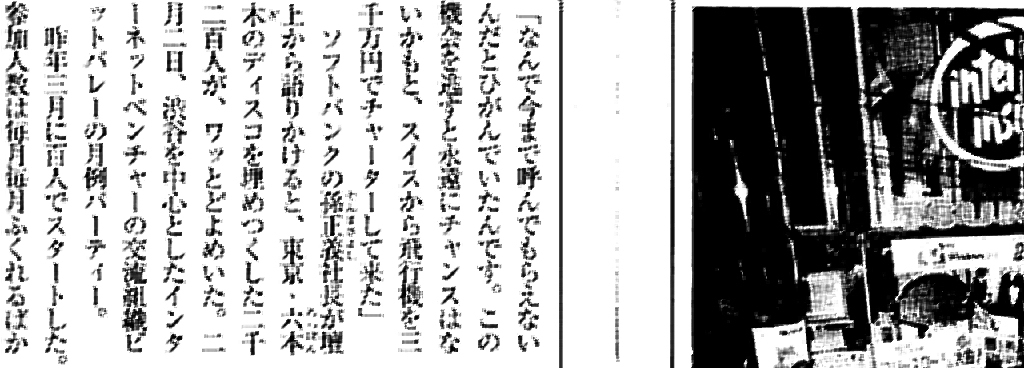 「なんで今まで呼んでもらえない
んだとひがんでいたんです。この
機会を逃すと永遠にチャンスはな
いかもと、スイスから飛行機を三
千万円でチャーターして来た」
ソフトバンクの孫正義社長が壇
上から語りかけると、東京・六本
木のディスコを埋めつくした二千
二百人が、ワッとどよめいた。二
月二日、渋谷を中心としたインタ
ーネットベンチャーの交流組織ビ
ットバレーの月例パーティー。
昨年三月に百人でスタートした。
参加人数は毎月毎月ふくれるばか